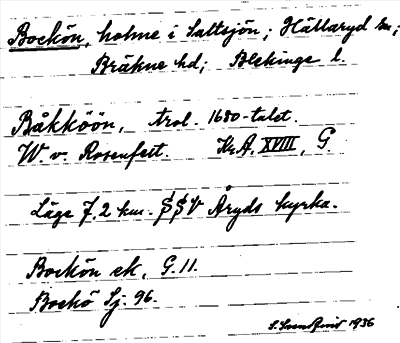 Bockön, holme i Saltsjön; Hällaryd sn;
Bräkne hd; Blekinge l.
Båkköön, trol. 1680-talet.
W. v. Rosenfelt. Kr.A. XVIII, G
Läge 7,2 km. SSV Åryds kyrka.
Bockön ek, G. 11.
Bockö Sj. 96.
1936